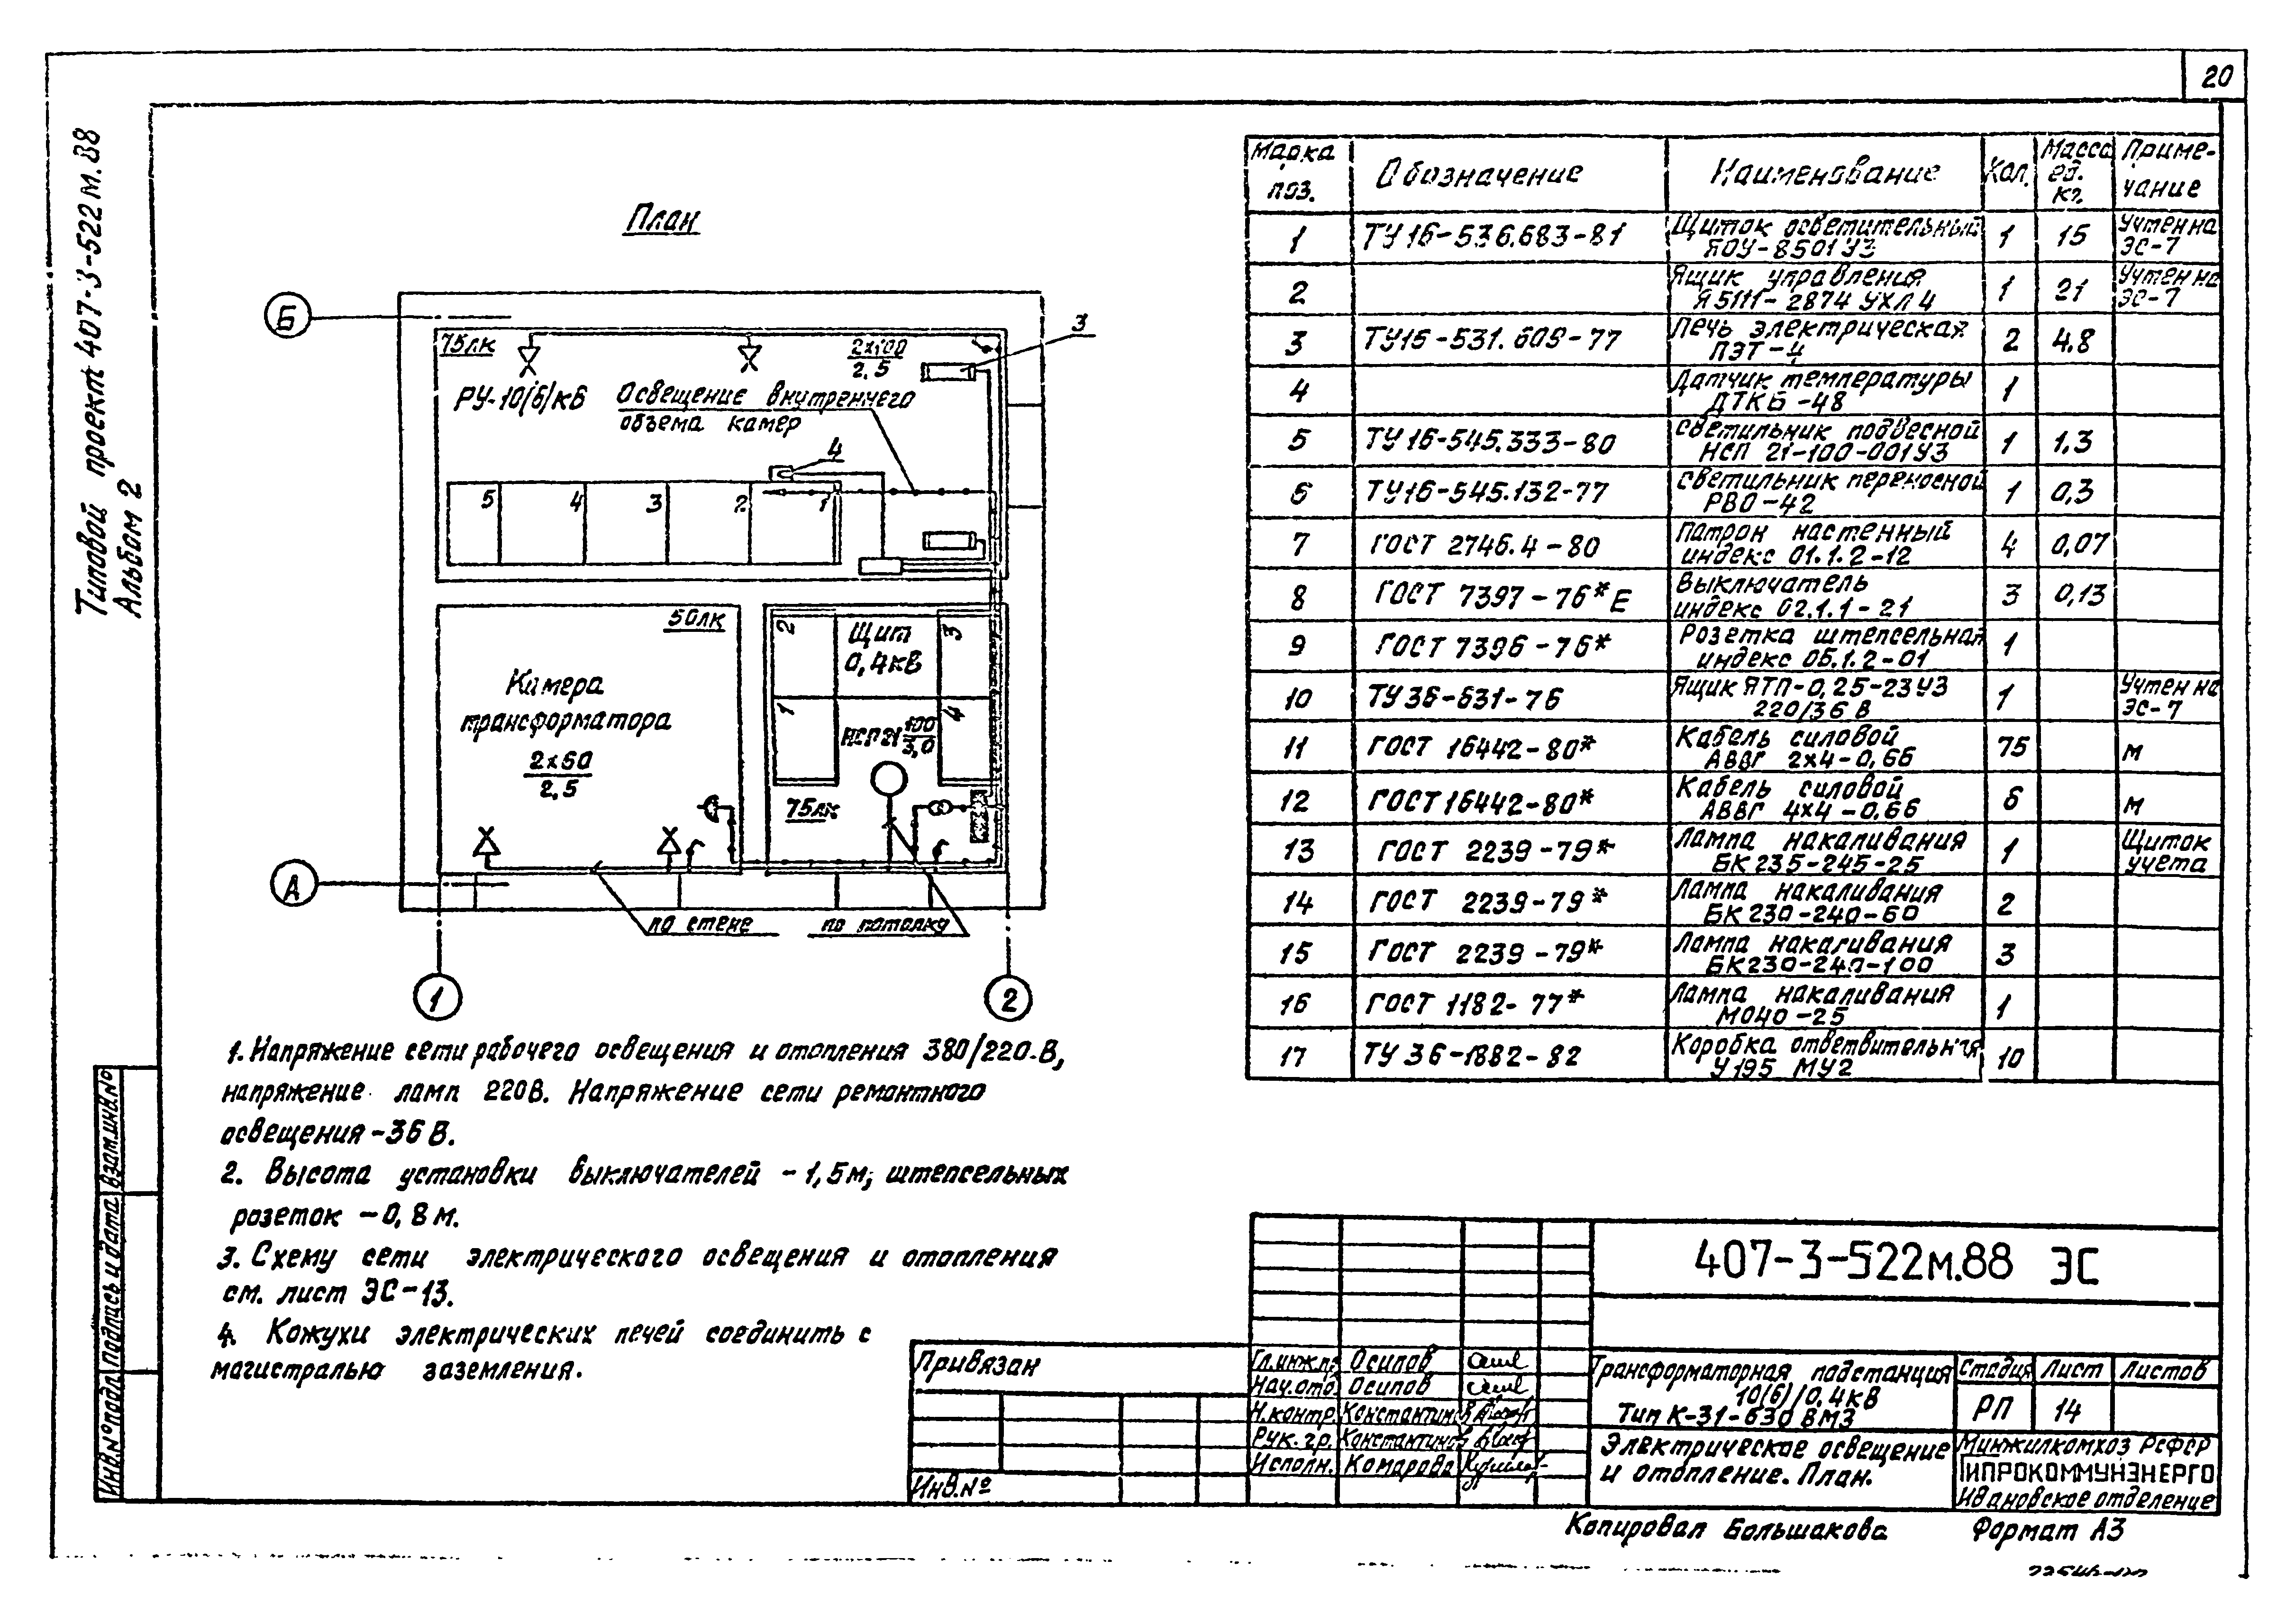 20
Типовой проект 407-3-522м.88
Альбом 2
План
Б
75лк
2х100
2.5
3
РУ-10(6)кВ
Освещение внутреннего
объема камер
4
5 4 3 2 1
50лк
Камера
трансформатора
2х60
2.5
2
Щит
0,4кВ
3
1
НСП21 100
3,0
4
75лк
А
по стене
по потолку
1
2
1. Напряжение сети рабочего освещения и отопления 380/220 В,
напряжение ламп 220В. Напряжение сети ремонтного
освещения-36 В.
2. Высота установки выключателей - 1,5м, штепсельных
розеток -0,8 м.
3. Схему сети электрического освещения и отопления
см. лист ЭС-13.
4. Кожухи электрических печей соединить с
магистралью заземления.
Марка поз. Обозначение Наименование Кол. Масса ед. кг. Примечание
1 ТУ 16-536.683-81 Щиток осветительный ЯОУ-8501 У3 1 15 Учтен на ЭС-7
2 Ящик управления Я5111-2874 УХЛ 4 1 21 Учтен на ЭС-7
3 ТУ16-531.609-77 Печь электрическая ПЭТ-4 2 4.8
4 Датчик температуры ДТКБ-48 1
5 ТУ 16-545.333-80 Светильник подвесной НСП 21-100-001У3 1 1,3
6 ТУ16-545.132-77 Светильник переносной РВО-42 1 0,3
7 ГОСТ 2746.4-80 Патрон настенный индекс 01.1.2-12 4 0,07
8 ГОСТ 7397-76*Е Выключатель индекс 02.1.1-21 3 0,13
9 ГОСТ 7396-76* Розетка штепсельная индекс 05.1.2-01 1
10 ТУ 36-631-76 Ящик ЯТП-0,25-23У3 220/36 В 1 Учтен на ЭС-7
11 ГОСТ 16442-80* Кабель силовой АВВГ 2х4-0,66 75 м
12 ГОСТ 16442-80* Кабель силовой АВВГ 4х4-0,66 6 м
13 ГОСТ 2239-79* Лампа накаливания БК 235-245-25 1 Щиток учета
14 ГОСТ 2239-79* Лампа накаливания БК 230-240-60 2
15 ГОСТ 2239-79* Лампа накаливания БК230-240-100 3
16 ГОСТ 1182-77* Лампа накаливания МО40-25 1
17 ТУ 36-1882-82 Коробка ответвительная У195 МУ2 10
407-3-522м.88 ЭС
Привязан
Инв.№
Гл.инж.пр. Осипов
Нач.отд. Осипов
Н.контр. Константинов
Рук.гр. Константинов
Исполн. Комарова
Трансформаторная подстанция
10(6)/0,4кВ
Тип К-31-630 ВМ3
Стадия Лист Листов
РП 14
Электрическое освещение
и отопление. План.
Минжилкомхоз РСФСР
ГИПРОКОММУНЭНЕРГО
Ивановское отделение
Инв.№подл. Подпись и дата Взам.инв.№
Копировал Большакова
Формат А3